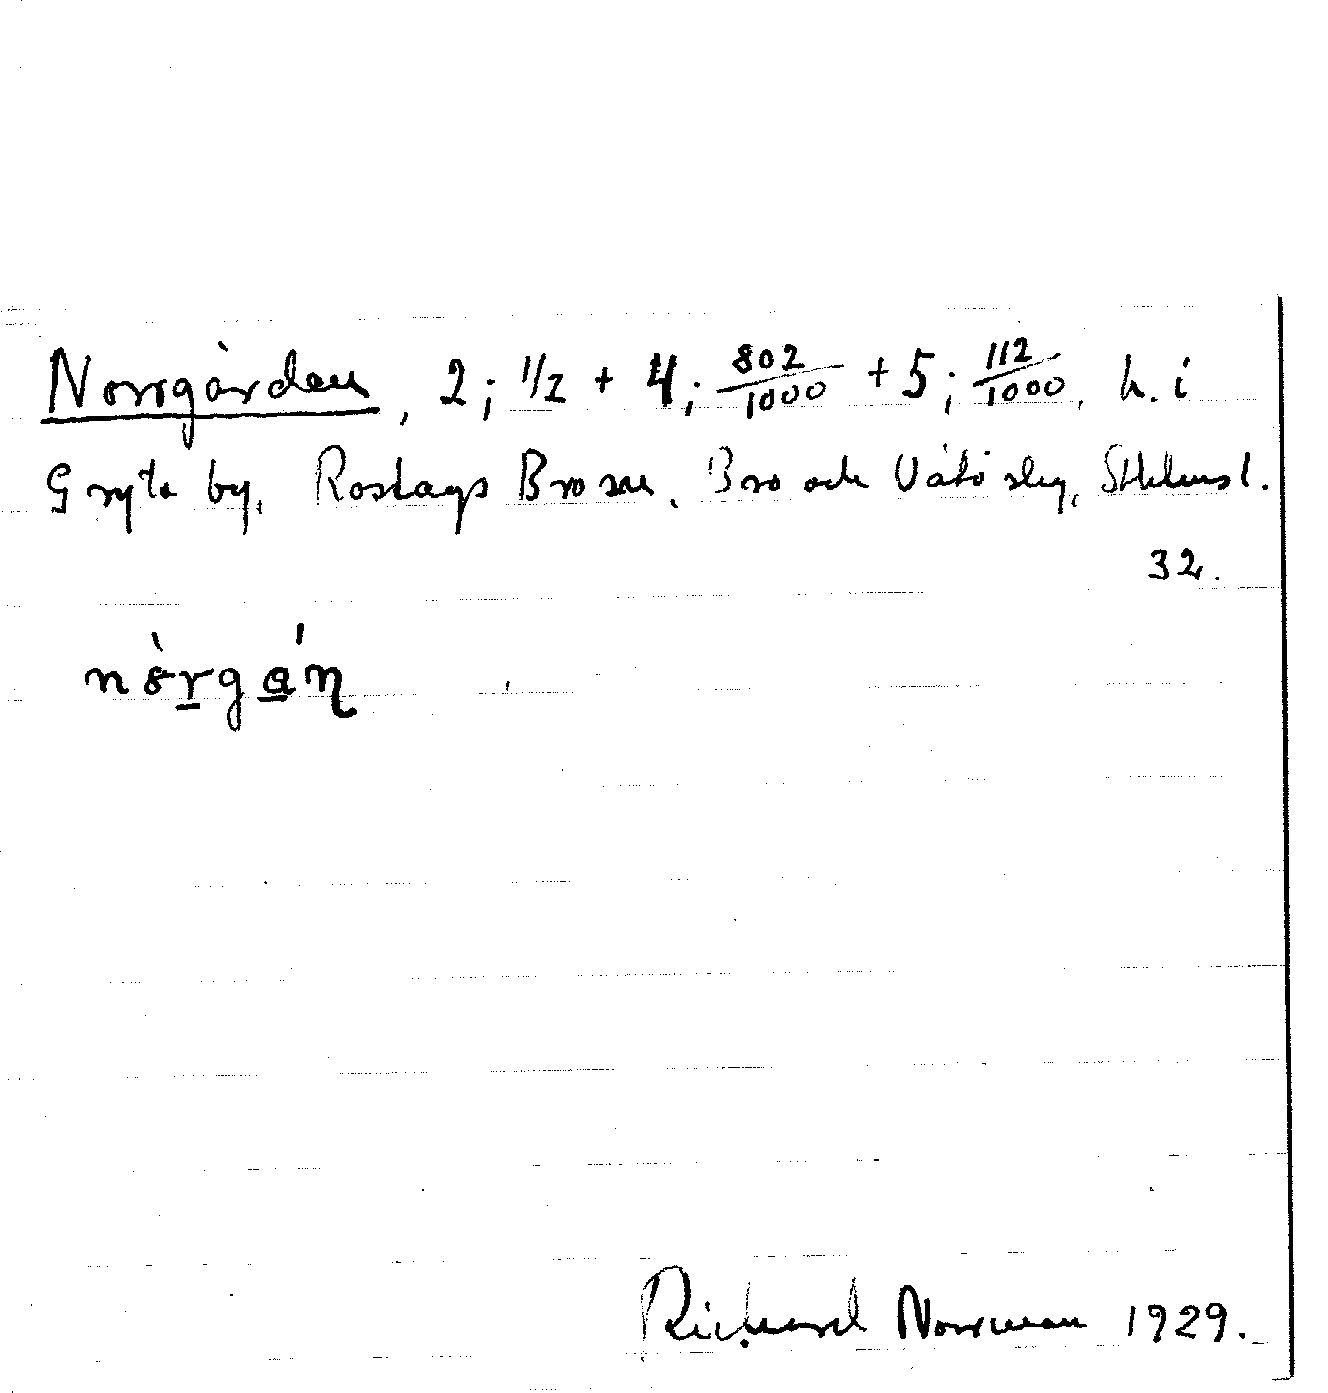 Norrgården, 2; 1/2 + 4; 802/1000 + 5; 112/1000, h. i
Gryta by, Roslags Bro sn, Bro och Vätö slg, Sthlms l.
32.
nòrgán
Richard Norrman 1929.